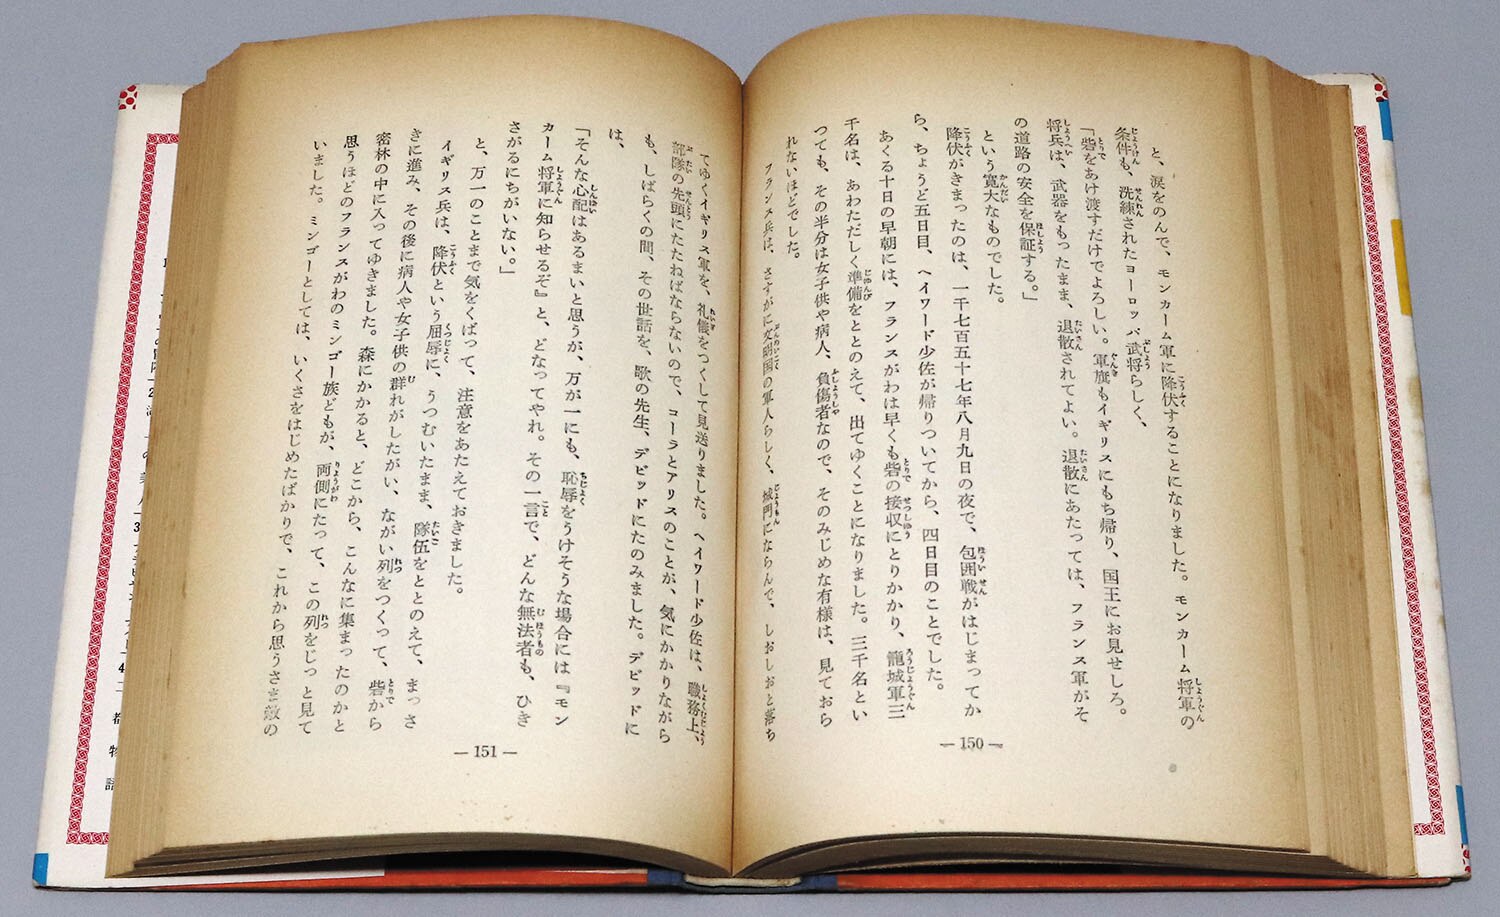 と、涙をのんで、モンカーム軍に降伏することになりました。モンカーム将軍の
条件も、洗練されたヨーロッパ武将らしく、
「砦をあけ渡すだけでよろしい。軍旗もイギリスにもち帰り、国王にお見せしろ。
将兵は、武器をもったまま、退散されてよい。退散にあたっては、フランス軍がそ
の道路の安全を保証する。」
という寛大なものでした。
降伏がきまったのは、一千七百五十七年八月九日の夜で、包囲戦がはじまってか
ら、ちょうど五日目、ヘイワード少佐が帰りついてから、四日目のことでした。
あくる十日の早朝には、フランスがわは早くも砦の接収にとりかかり、籠城軍三
千名は、あわただしく準備をととのえて、出てゆくことになりました。三千名とい
っても、その半分は女子供や病人、負傷者なので、そのみじめな有様は、見ておら
れないほどでした。
フランス兵は、さすがに文明国の軍人らしく、城門にならんで、しおしおと落ち
― 150 ―
てゆくイギリス軍を、礼儀をつくして見送りました。ヘイワード少佐は、職務上、
部隊の先頭にたたねばならないので、コーラとアリスのことが、気にかかりながら
も、しばらくの間、その世話を、歌の先生、デビッドにたのみました。デビッドに
は、
「そんな心配はあるまいと思うが、万が一にも、恥辱をうけそうな場合には『モン
カーム将軍に知らせるぞ』と、どなってやれ。その一言で、どんな無法者も、ひき
さがるにちがいない。」
と、万一のことまで気をくばって、注意をあたえておきました。
イギリス兵は、降伏という屈辱に、うつむいたまま、隊伍をととのえて、まっさ
きに進み、その後に病人や女子供の群れがしたがい、ながい列をつくって、砦から
密林の中に入ってゆきました。森にかかると、どこから、こんなに集まったのかと
思うほどのフランスがわのミンゴー族どもが、両側にたって、この列をじっと見て
いました。ミンゴーとしては、いくさをはじめたばかりで、これから思うさま敵の
― 151 ―